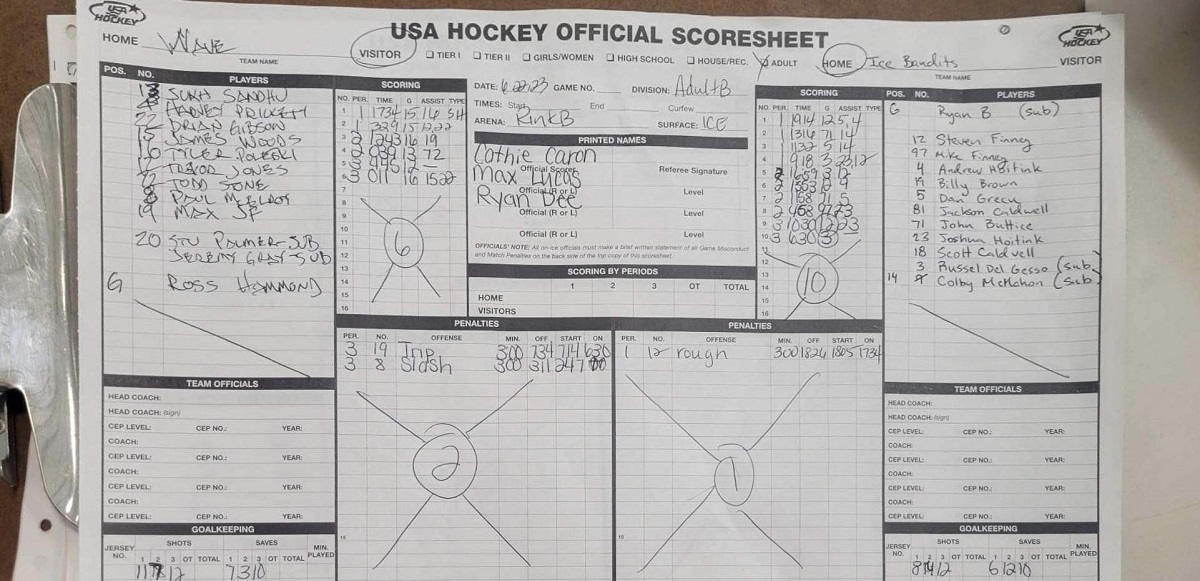 USA HOCKEY
USA HOCKEY OFFICIAL SCORESHEET
USA HOCKEY
HOME WAVE
TEAM NAME
VISITOR
TIER I TIER II GIRLS/WOMEN HIGH SCHOOL HOUSE/REC. ADULT
HOME Ice Bandits VISITOR
TEAM NAME
POS. NO. PLAYERS
13 SUKH SANDHU
BRIAN GIBSON
JAMES WOODS
TREVOR JONES
TODD STONE
19 MAX
20 STU PALMER-SUB
JEREMY GRAY-SUB
G ROSS HAMMOND
SCORING
NO. PER. TIME G ASSIST TYPE
1 1 1734 15 16 SH
2 1 329 15 12,22
3 2 1243 16 19
4 2 939 13 72
5
6 3 011 16 15 22
7
8
9
10
11
12
13
14
15
16
6
DATE: 6.22.23 GAME NO. DIVISION: Adult B
TIMES: Start End Curfew
ARENA: Rink B SURFACE: ICE
PRINTED NAMES
Cathie Caron
Official Scorer Referee Signature
Max Lucas
Official (R or L) Level
Ryan Dee
Official (R or L) Level
Official (R or L) Level
OFFICIALS' NOTE: All on-ice officials must make a brief written statement of all Game Misconduct
and Match Penalties on the back side of the top copy of this scoresheet.
SCORING BY PERIODS
1 2 3 OT TOTAL
HOME
VISITORS
SCORING
NO. PER. TIME G ASSIST TYPE
1 1 1914 12 5,4
2 1 1316 71 14
3 1 1132 5 14
4 1 918 3 23,12
5 2 1659 3 12
6 2 1353 12 4
7 2 1158 71 5
8 2 458 97 23
9 3 1030 12 23
10 3 630 3
11
12
13
14
15
16
10
POS. NO. PLAYERS
G Ryan B (sub)
12 Steven Finney
97 Mike Finney
4 Andrew Hoitink
Billy Brown
5 Dan Grecu
81 Jackson Caldwell
71 John Buttice
23 Joshua Hoitink
18 Scott Caldwell
3 Russel Del Gesso (sub)
14 Colby McMahon (sub)
PENALTIES
PER. NO. OFFENSE MIN. OFF START ON
3 19 Trip 300 734 714 630
3 8 Slash 300 311 247
2
PENALTIES
PER. NO. OFFENSE MIN. OFF START ON
1 12 rough 300 1824 1805 1734
1
TEAM OFFICIALS
HEAD COACH:
HEAD COACH: (sign)
CEP LEVEL: CEP NO.: YEAR:
COACH:
CEP LEVEL: CEP NO.: YEAR:
COACH:
CEP LEVEL: CEP NO.: YEAR:
COACH:
CEP LEVEL: CEP NO.: YEAR:
TEAM OFFICIALS
HEAD COACH:
HEAD COACH: (sign)
CEP LEVEL: CEP NO.: YEAR:
COACH:
CEP LEVEL: CEP NO.: YEAR:
COACH:
CEP LEVEL: CEP NO.: YEAR:
COACH:
CEP LEVEL: CEP NO.: YEAR:
GOALKEEPING
JERSEY NO. SHOTS SAVES MIN. PLAYED
1 2 3 OT TOTAL 1 2 3 OT TOTAL
12 7 3 10
GOALKEEPING
JERSEY NO. SHOTS SAVES MIN. PLAYED
1 2 3 OT TOTAL 1 2 3 OT TOTAL
8 14 12 6 12 10